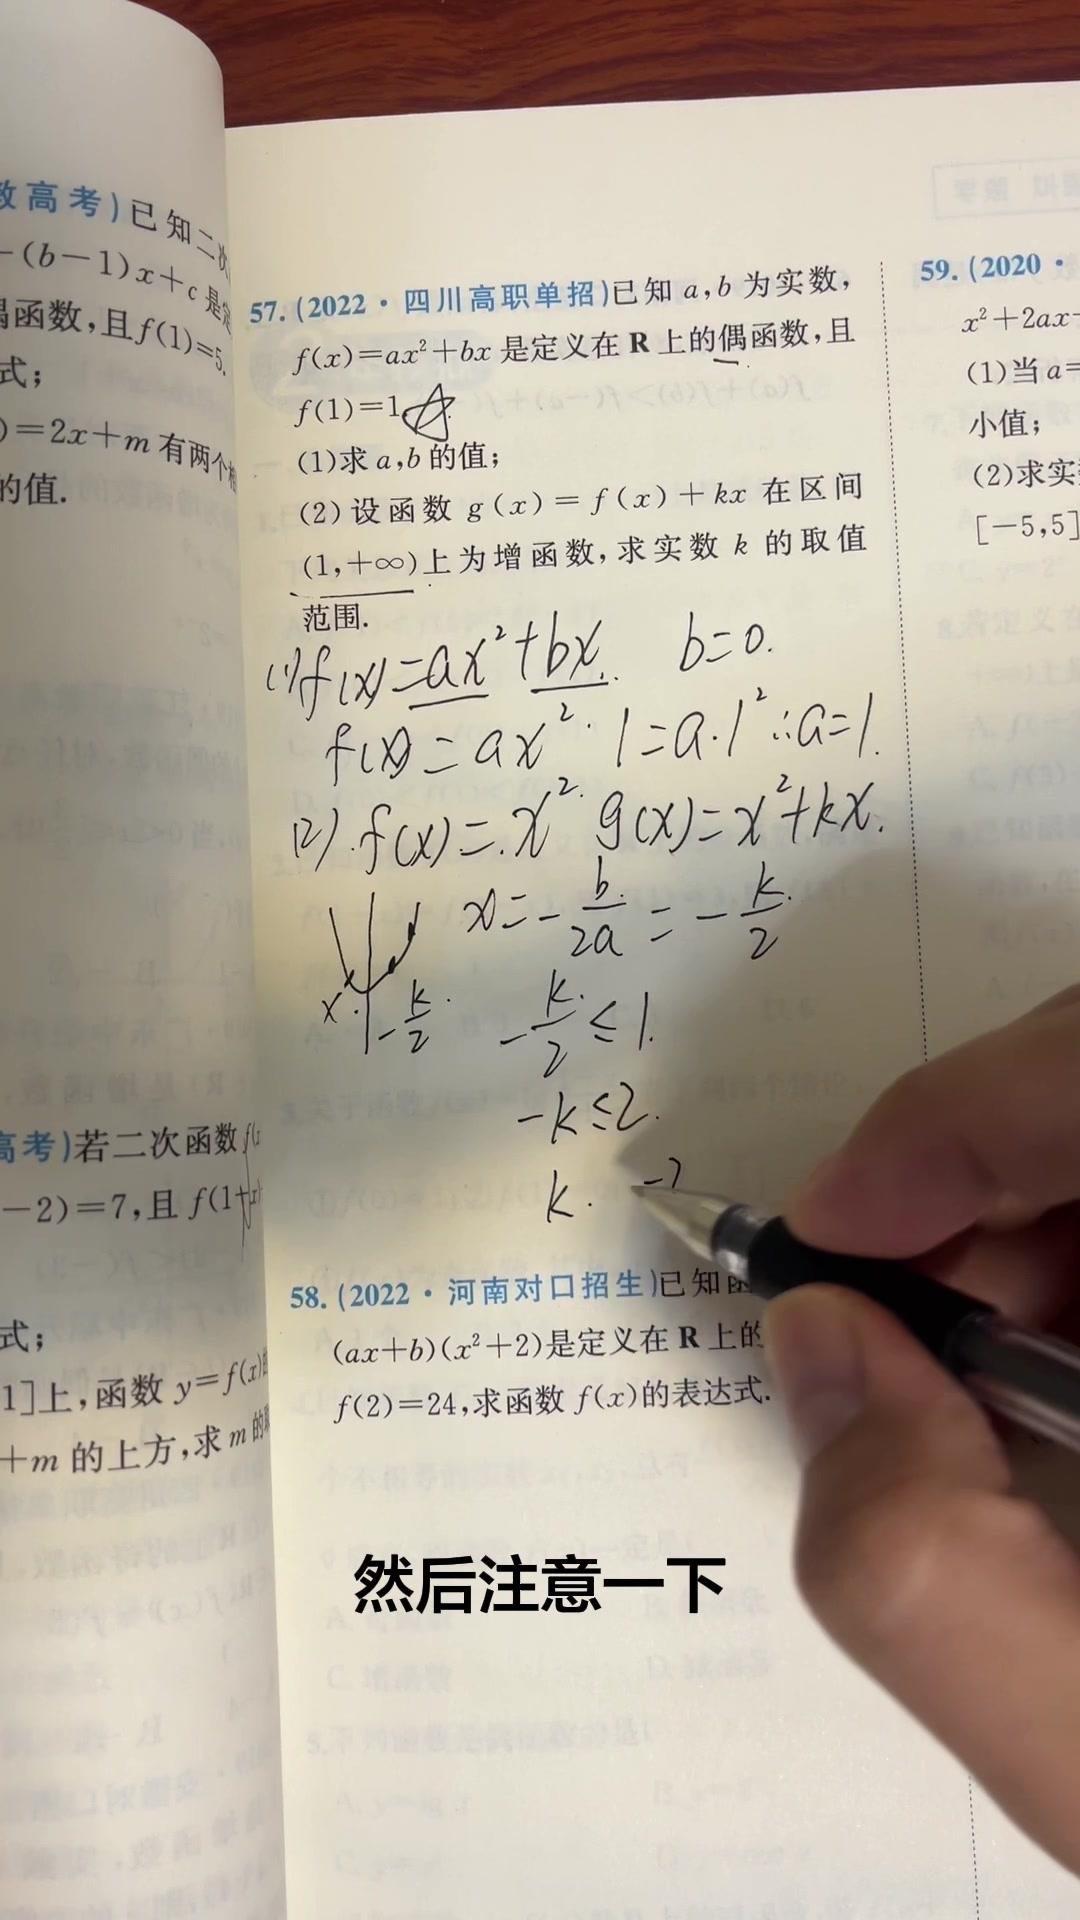 数高考)已知二次
-(b-1)x+c是定
偶函数,且f(1)=5.
式;
)=2x+m有两个相
的值.
高考)若二次函数f(x
-2)=7,且f(1+x)
式;
1]上,函数y=f(x)的
+m的上方,求m的取
57.(2022·四川高职单招)已知a,b为实数,
f(x)=ax²+bx是定义在R上的偶函数,且
f(1)=1.
(1)求a,b的值;
(2)设函数g(x)=f(x)+kx在区间
(1,+∞)上为增函数,求实数k的取值
范围.
(1)f(x)=ax²+bx. b=0.
f(x)=ax². 1=a·1² ∴a=1.
(2).f(x)=x². g(x)=x²+kx.
x=-b/2a=-k/2
x. -k/2. -k/2≤1.
-k≤2.
k. -2
58.(2022·河南对口招生)已知函
(ax+b)(x²+2)是定义在R上的
f(2)=24,求函数f(x)的表达式.
59.(2020·
x²+2ax+
(1)当a=
小值;
(2)求实
[-5,5]
然后注意一下